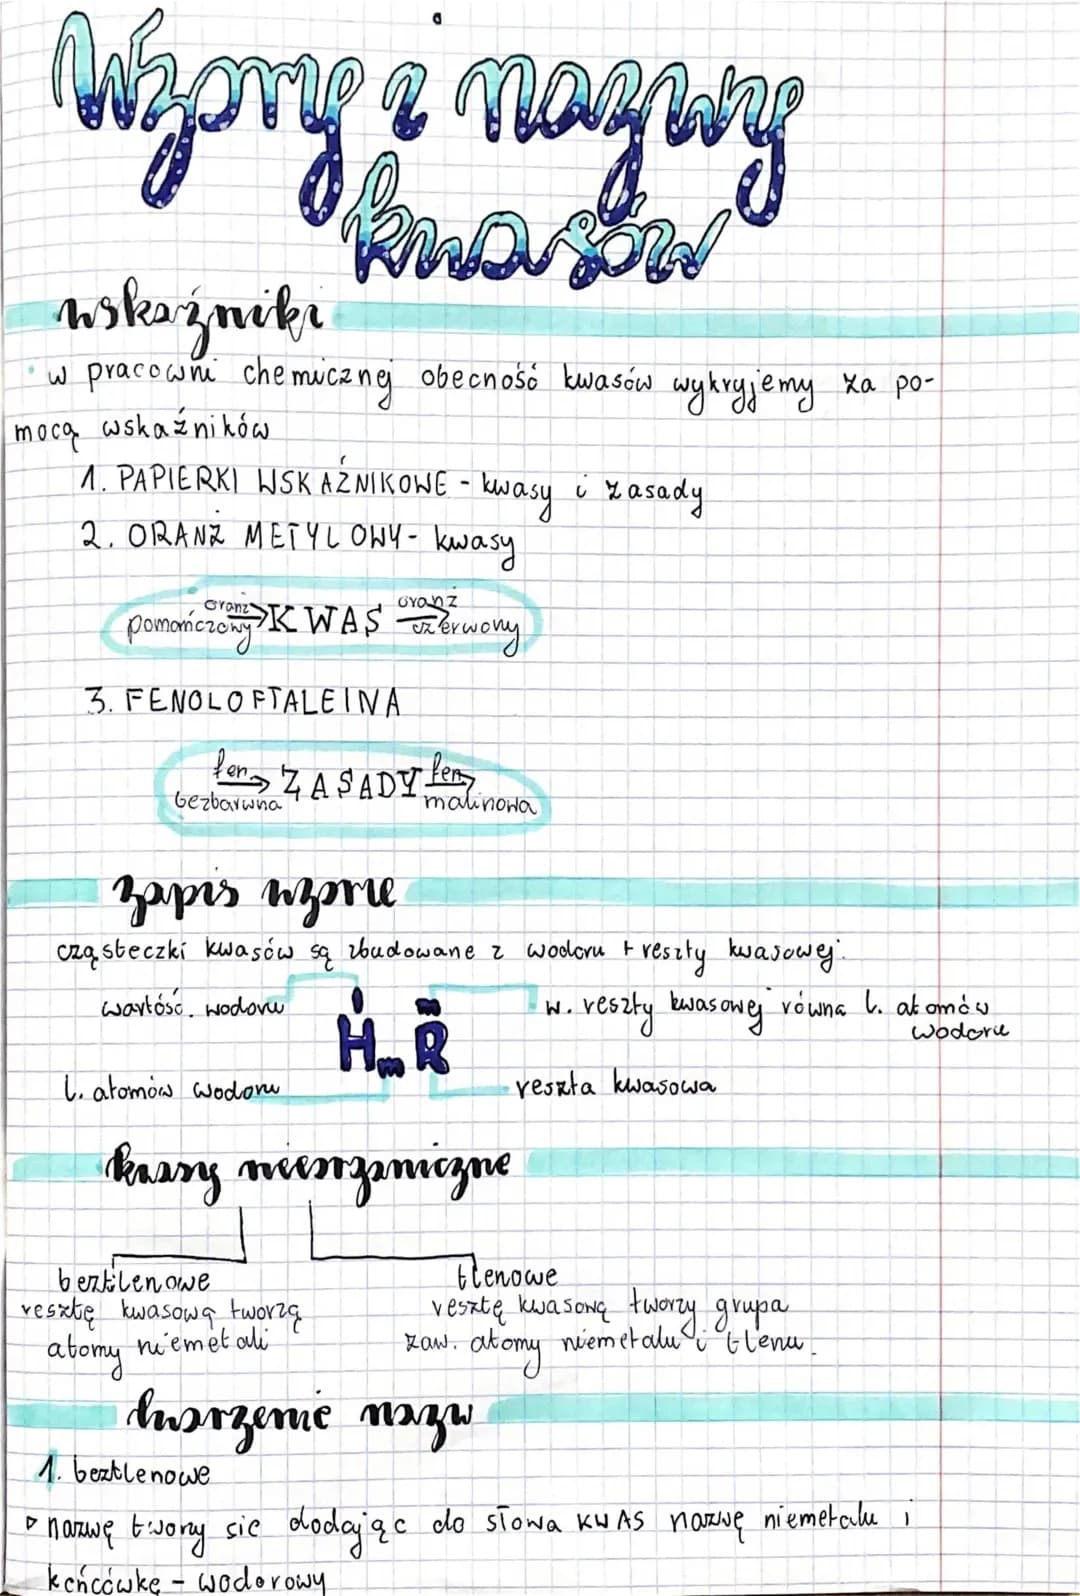 Wzory i nazwy
kwasów
wskaźniki
• w pracowni chemicznej obecność kwasów wykryjemy za po-
mocą wskaźników
1. PAPIERKI WSKAŹNIKOWE - kwasy i zasady
2. ORANŻ METYLOWY - kwasy
oranż → KWAS oranż →
pomarńczowy czerwony
3. FENOLOFTALEINA
fen → ZASADY fen →
bezbarwna malinowa
zapis wzoru
cząsteczki kwasów są zbudowane z wodoru + reszty kwasowej.
wartość. wodoru I m w. reszty kwasowej równa l. atomów
wodoru
HmR
l. atomów wodoru reszta kwasowa
kwasy nieorganiczne
beztlenowe tlenowe
resztę kwasową tworzą resztę kwasową tworzy grupa
atomy niemetali zaw. atomy niemetalu i tlenu.
tworzenie nazw
1. beztlenowe
▹ nazwę tworzy się dodając do słowa KWAS nazwę niemetalu i
końcówkę - wodorowy